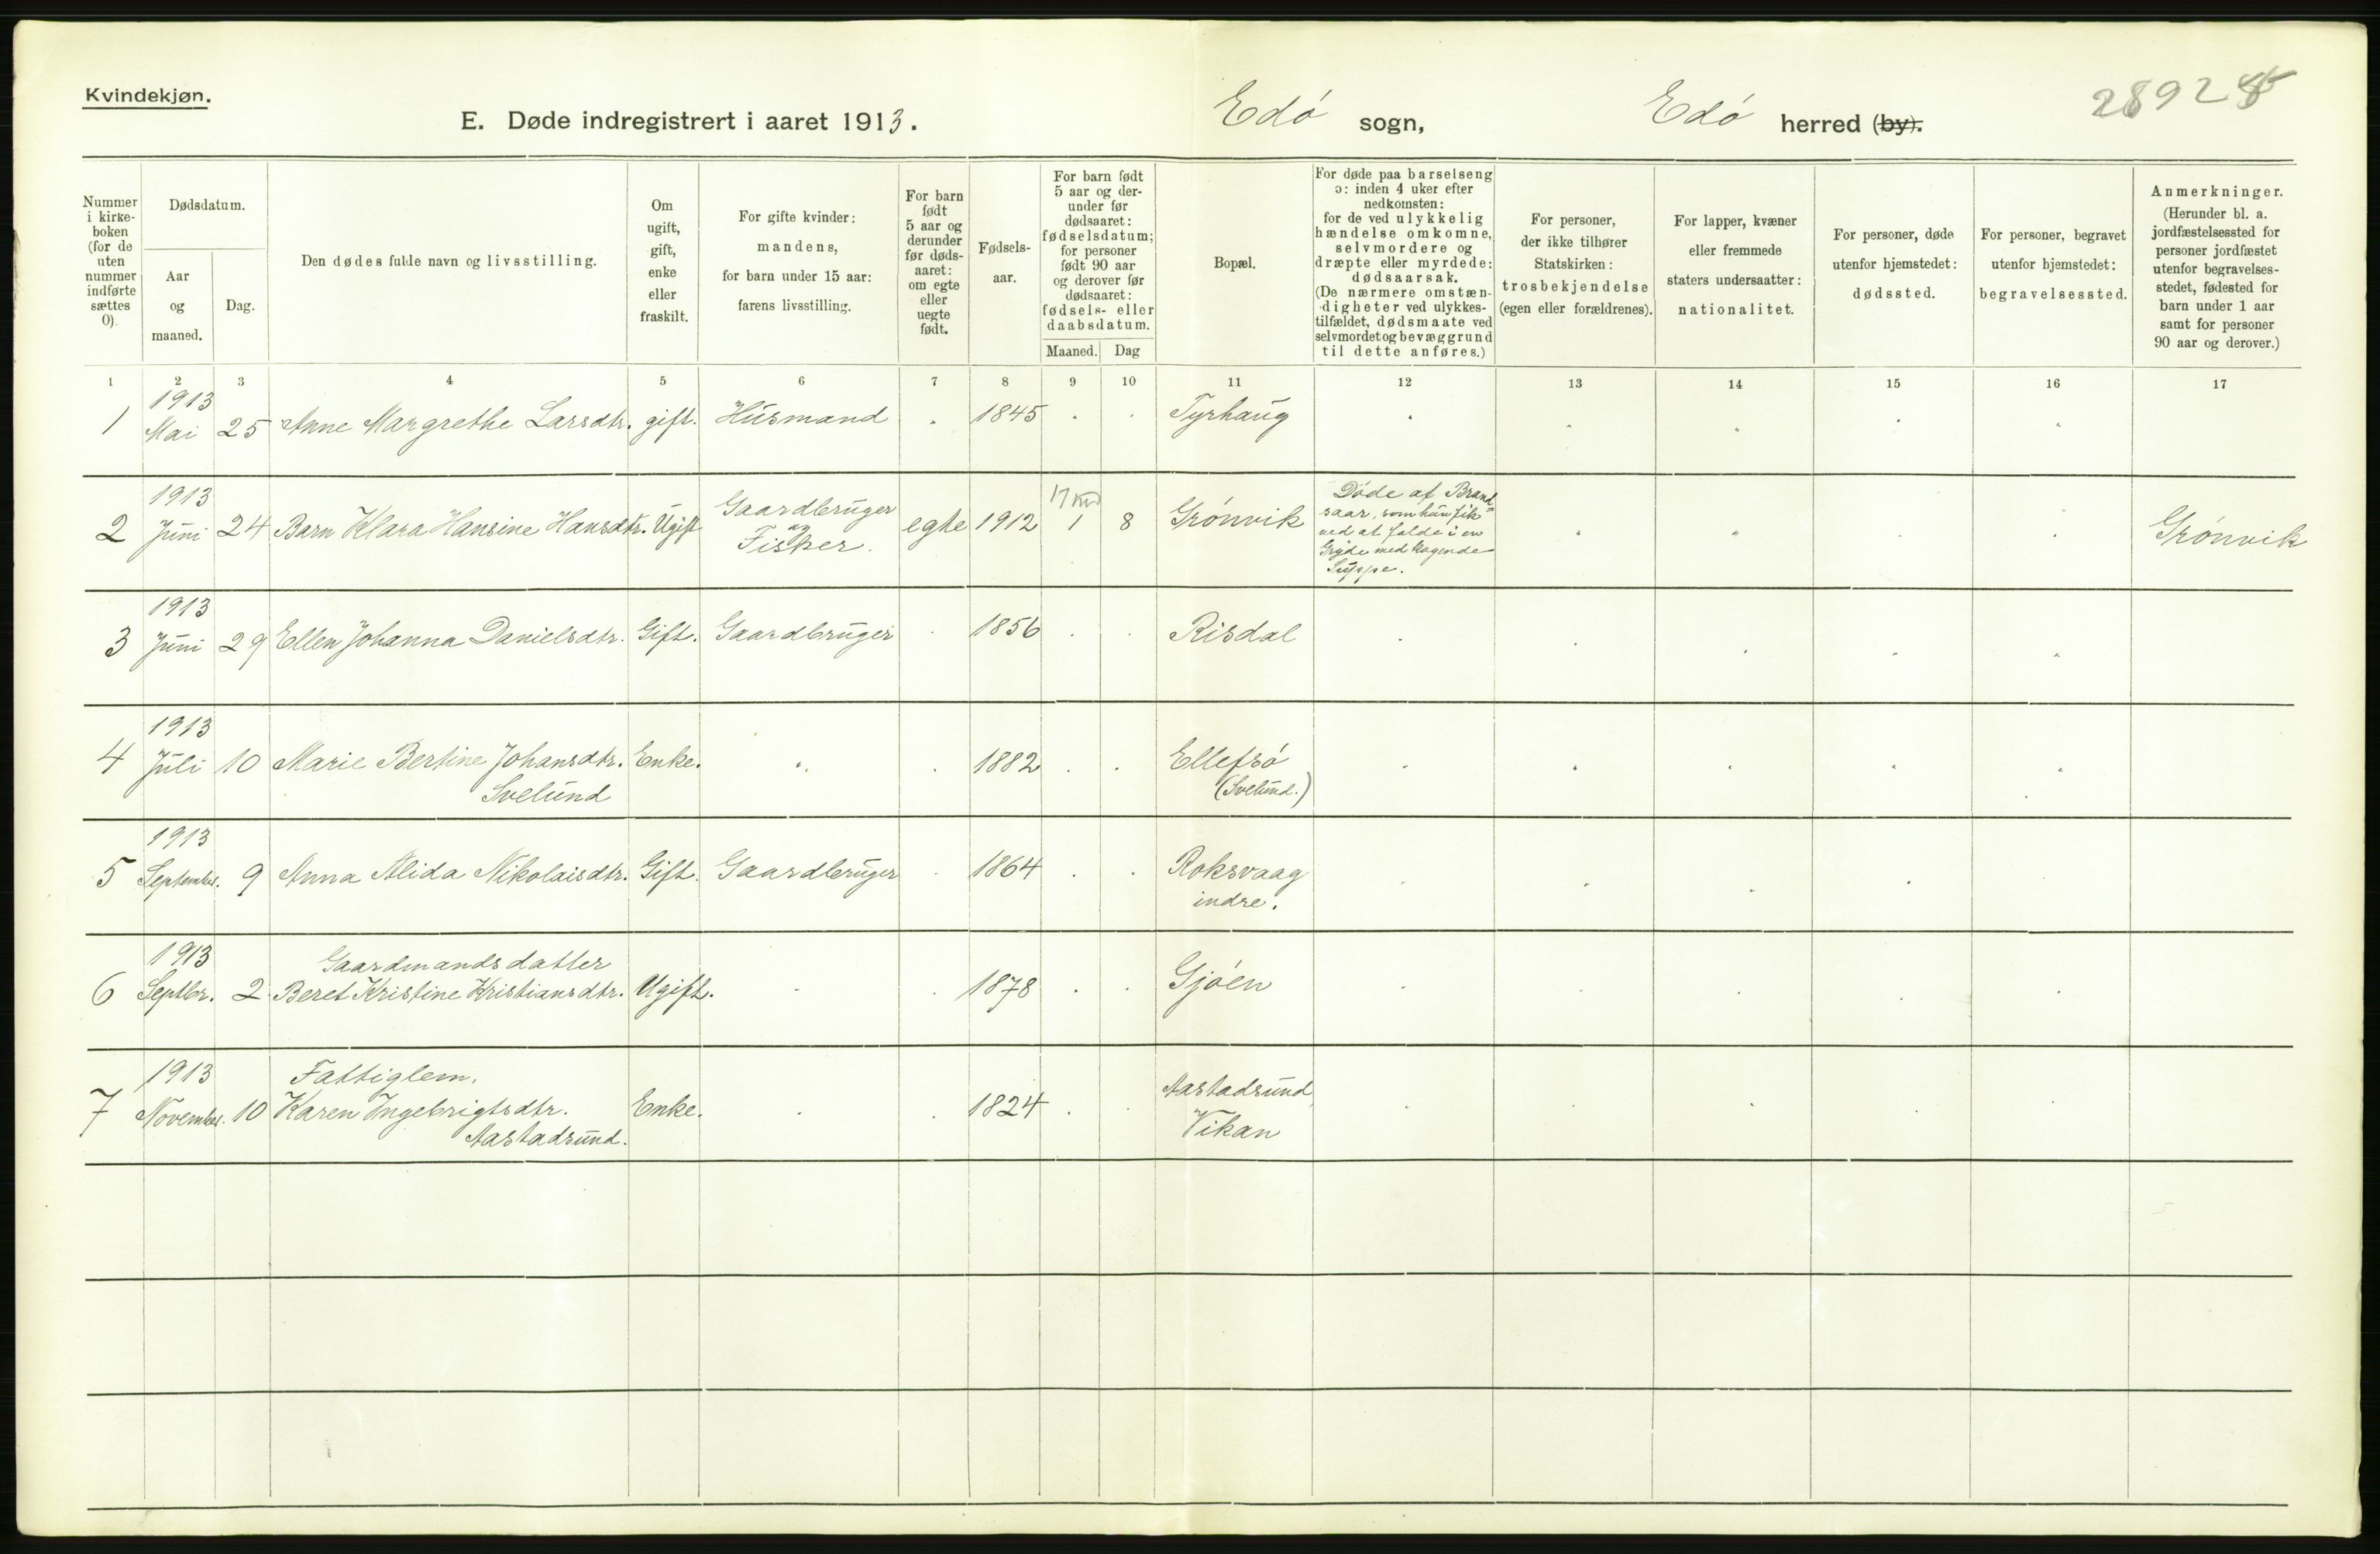 Kvindekjøn.
E. Døde indregistrert i aaret 1913.
Edø sogn,
Edø herred (by).
Nummer i kirke-boken (for de uten nummer indførte sættes 0).
Dødsdatum.
Aar og maaned.
Dag.
Den dødes fulde navn og livsstilling.
Om ugift, gift, enke eller fraskilt.
For gifte kvinder: mandens, for barn under 15 aar: farens livsstilling.
For barn født 5 aar og derunder før døds-aaret: om egte eller uegte født.
Fødsels-aar.
For barn født 5 aar og der-under før dødsaaret: fødselsdatum; for personer født 90 aar og derover før dødsaaret: fødsels- eller daabsdatum.
Maaned.
Dag
Bopæl.
For døde paa barselseng ɔ: inden 4 uker efter nedkomsten: for de ved ulykkelig hændelse omkomne, selvmordere og dræpte eller myrdede: dødsaarsak. (De nærmere omstæn-digheter ved ulykkes-tilfældet, dødsmaate ved selvmordet og bevæggrund til dette anføres.)
For personer, der ikke tilhører Statskirken: trosbekjendelse (egen eller forældrenes).
For lapper, kvæner eller fremmede staters undersaatter: nationalitet.
For personer, døde utenfor hjemstedet: dødssted.
For personer, begravet utenfor hjemstedet: begravelsessted.
Anmerkninger. (Herunder bl. a. jordfæstelsessted for personer jordfæstet utenfor begravelses-stedet, fødested for barn under 1 aar samt for personer 90 aar og derover.)
1 2 3 4 5 6 7 8 9 10 11 12 13 14 15 16 17
1 1913 Mai 25 Anne Margrethe Larsdtr. gift. Husmand 1845 Tyrhaug
2 1913 Juni 24 Barn Klara Hansine Hansdtr. Ugift Gaardbruger og Fisker. egte 1912 1 8 Grønvik
Døde af Brand-
saar, som hun fik
ved at falde i en
Gryde med kogende
Suppe.
Grønvik
3 1913 Juni 29 Ellen Johanna Danielsdtr. Gift. Gaardbruger 1856 Risdal
4 1913 Juli 10 Marie Bertine Johansdtr. Svelund Enke. 1882 Ellefsø (Svelund.)
5 1913 September. 9 Anna Alida Nikolaisdtr. Gift. Gaardbruger 1864 Roksvaag indre.
6 1913 Septbr. 2 Gaardmandsdatter Beret Kristine Kristiansdtr. Ugift. 1878 Gjøen
7 1913 November. 10 Fattiglem. Karen Ingebrigtsdtr. Aastadsund. Enke. 1824 Aastadsund, Vikan